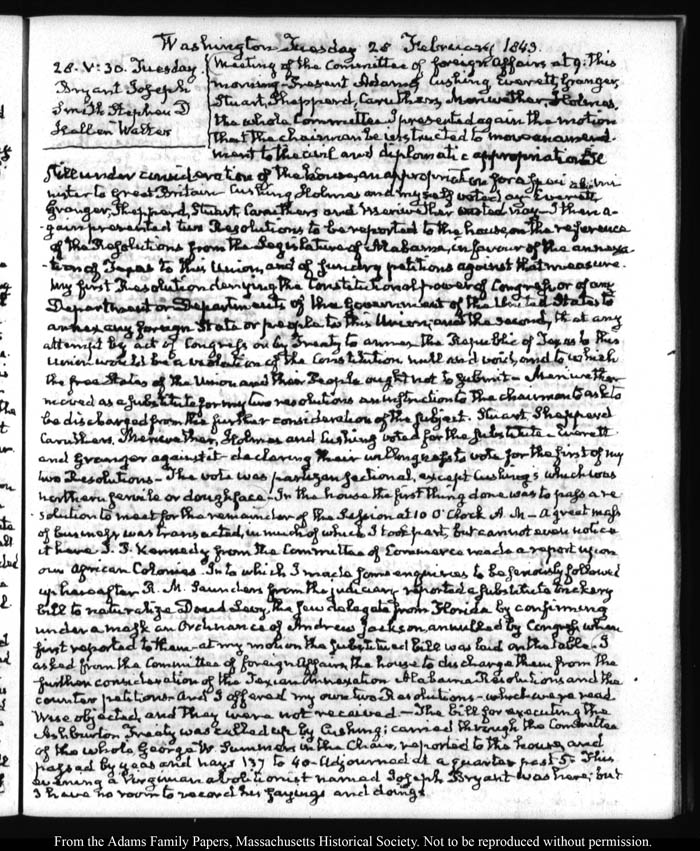 Washington Tuesday 28 February 1843.
28. V:30. Tuesday
Bryant Joseph
Smith Stephen D
Hallen Walter
Meeting of the Committee of foreign Affairs at 9. This
morning—Present Adams, Cushing, Everett, Granger,
Stuart, Shepperd, Caruthers, Meriwether, Holmes,
the whole Committee I presented again the motion
that the chairman be instructed to move an amend-
ment to the civil and diplomatic appropriation
still under consideration of the house, an appropriation for a special mi
nister to Great Britain Cushing Holmes and myself voted ay Everett
Granger, Shepperd, Stuart, Caruthers and Meriwether voted nay—I then a-
gain presented two Resolutions to be reported to the house, on the reference
of the Resolutions from the Legislature of Alabama, in favour of the annexa-
tion of Texas to this Union, and of sundry petitions against that measure.
My first Resolution denying the Constitutional power of Congress, or of any
Department or Departments of the Government of the United States to
annex any foreign State or people to this Union; and the second, that any
attempt by act of Congress or by Treaty, to annex the Republic of Texas to this
Union would be a violation of the Constitution null and void, and to which
the free States of the Union and their People ought not to submit—Meriwether
moved as a substitute for my two resolutions an instruction to the chairman to ask to
be discharged from the further consideration of the subject. Stuart Shepperd
Caruthers, Meriwether, Holmes and Cushing voted for the substitute—Everett
and Granger against it—declaring their willingness to vote for the first of my
two Resolutions—The vote was partizan sectional, except Cushing's which was
northern servile or dough face—In the house the first thing done was to pass a re
solution to meet for the remainder of the Session at 10 O'Clock A.M—A great mass
of business was transacted, in much of which I took part, but cannot even notice
it here J. P. Kennedy from the Committee of Commerce made a report upon
our African Colonies. Into which I made some enquiries to be seriously followed
up hereafter R. M. Saunders from the judiciary reported a substitute
bill to naturalize David Levy, the Jew delegate from Florida by confirming
under a mask an Ordinance of Andrew Jackson, annulled by Congress when
first reported to them—at my motion the substituted bill was laid on the table. I
asked from the Committee of foreign Affairs, the house to discharge them from the
further consideration of the Texian Annexation Alabama Resolutions and the
counter petitions. And I offered my own two Resolutions—which were read
Wise objected, and they were not received—The bill for executing the
Ashburton Treaty was called up by Cushing; carried through the Committee
of the whole George W. Summers in the Chair, reported to the house, and
passed by yeas and nays 137 to 40—Adjourned at a quarter past 5—This
evening a Virginian abolitionist named Joseph Bryant was here; but
I have no room to record his sayings and doings
From the Adams Family Papers, Massachusetts Historical Society. Not to be reproduced without permission.